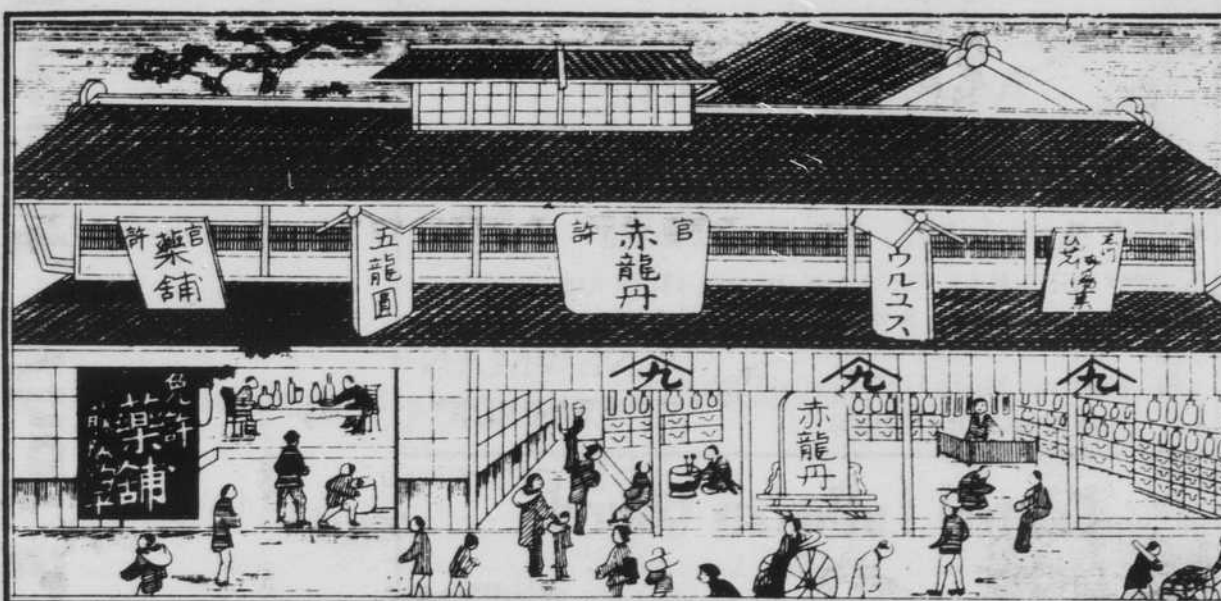 官許
藥舖
五龍圓
官許
赤龍丹
ウルユス
免許
薬舗
九
九
九
赤龍丹